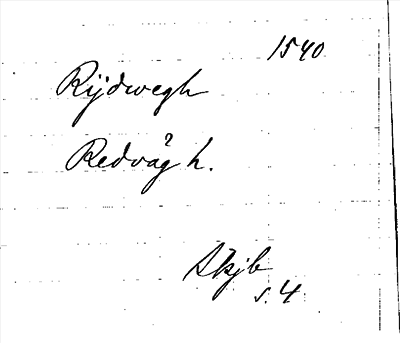 1540
Rijdwegh
Redvågh.
Skjb
s. 4